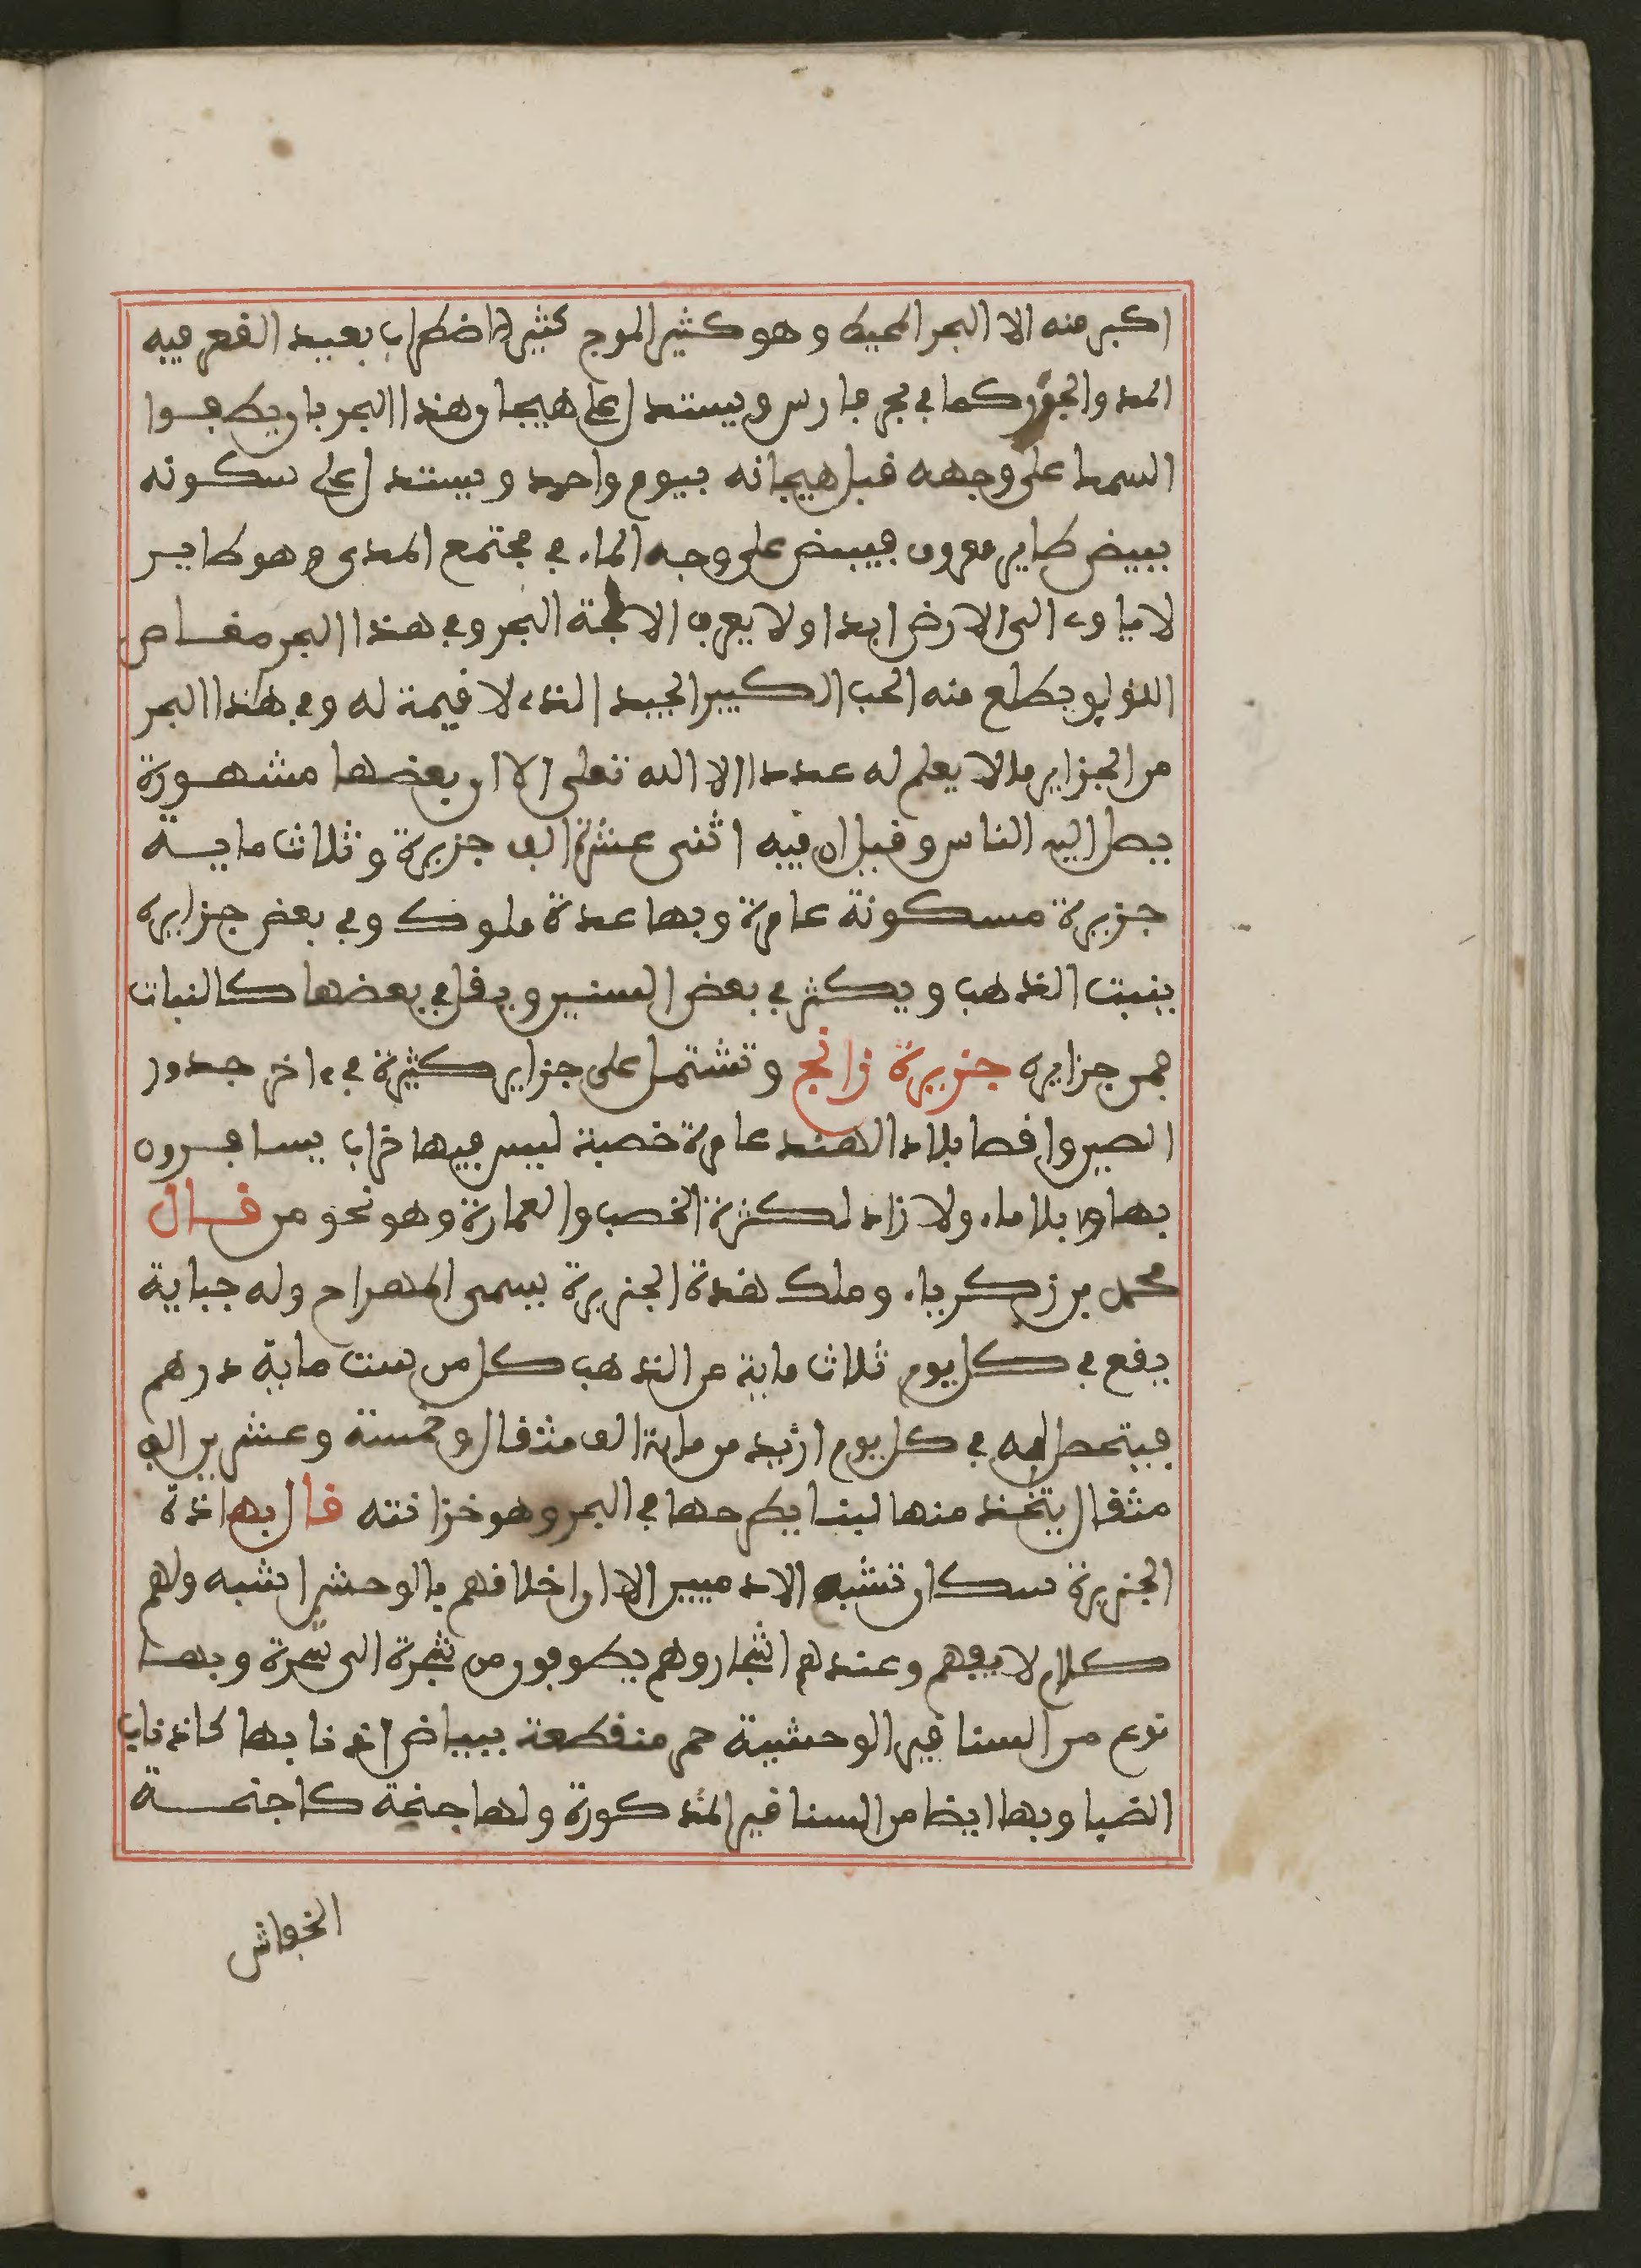 اكبر منه الا البحر المحيط وهو كثير الموج كثير الاضطراب بعيد القعر فيه
المد والجزر كما في بحر فارس ويستدل على هيجان هذا البحر بان يطفوا
السمك على وجهه قبل هيجانه بيوم واحد ويستدل على سكونه
ببيض طاير معروف فيبيض على وجه الماء في مجتمع المدى وهو طاير
لا ياوي الى الارض ابدا ولا يعرف الا لجة البحر وفي هذا البحر مغاص
اللؤلؤ ويطلع منه الحب الكبير الجيد الذي لا قيمة له وفي هذا البحر
من الجزاير ما لا يعلم له عددا الا الله تعلى الا ان بعضها مشهورة
يصل اليه الناس وقيل ان فيه اثنى عشرة الف جزيرة وثلاث ماية
جزيرة مسكونة عامرة وبها عدة ملوك وفي بعض جزايره
ينبت الذهب ويكثر في بعض السنين ويقل في بعضها كالنبات
فمن جزايره جزيرة زانج وتشتمل على جزاير كثيرة في ءاخر حدور
الصين واقصا بلاد الهند عامرة خصبة ليس فيها خراب يسافرون
بها بلا ماء ولا زاد لكثرة الخصب والعمارة وهو نحو من قال
محمد بن زكرياء وملك هذة الجزيرة يسمى المهراج وله جباية
يقع في كل يوم ثلاث ماية من الذهب كل من ست ماية درهم
فيتحصل له في كل يوم ازيد من ماية الف مثقال وخمسة وعشرين الف
مثقال يتخذ منها لبنا يطرحها في البحر وهو خزانته قال بهاذة
الجزيرة سكان تشبه الادميين الا ان اخلاقهم بالوحش اشبه ولهم
كلام لا يفهم وعندهم اشجار وهم يطوفون من شجرة الى شجرة وبها
نوع من السنافير الوحشية حمر منقطعة ببياض اذنابها كاذناب
الضبا وبها ايضا من السنافير المذكورة ولها جنحة كاجنحة
الخفاش